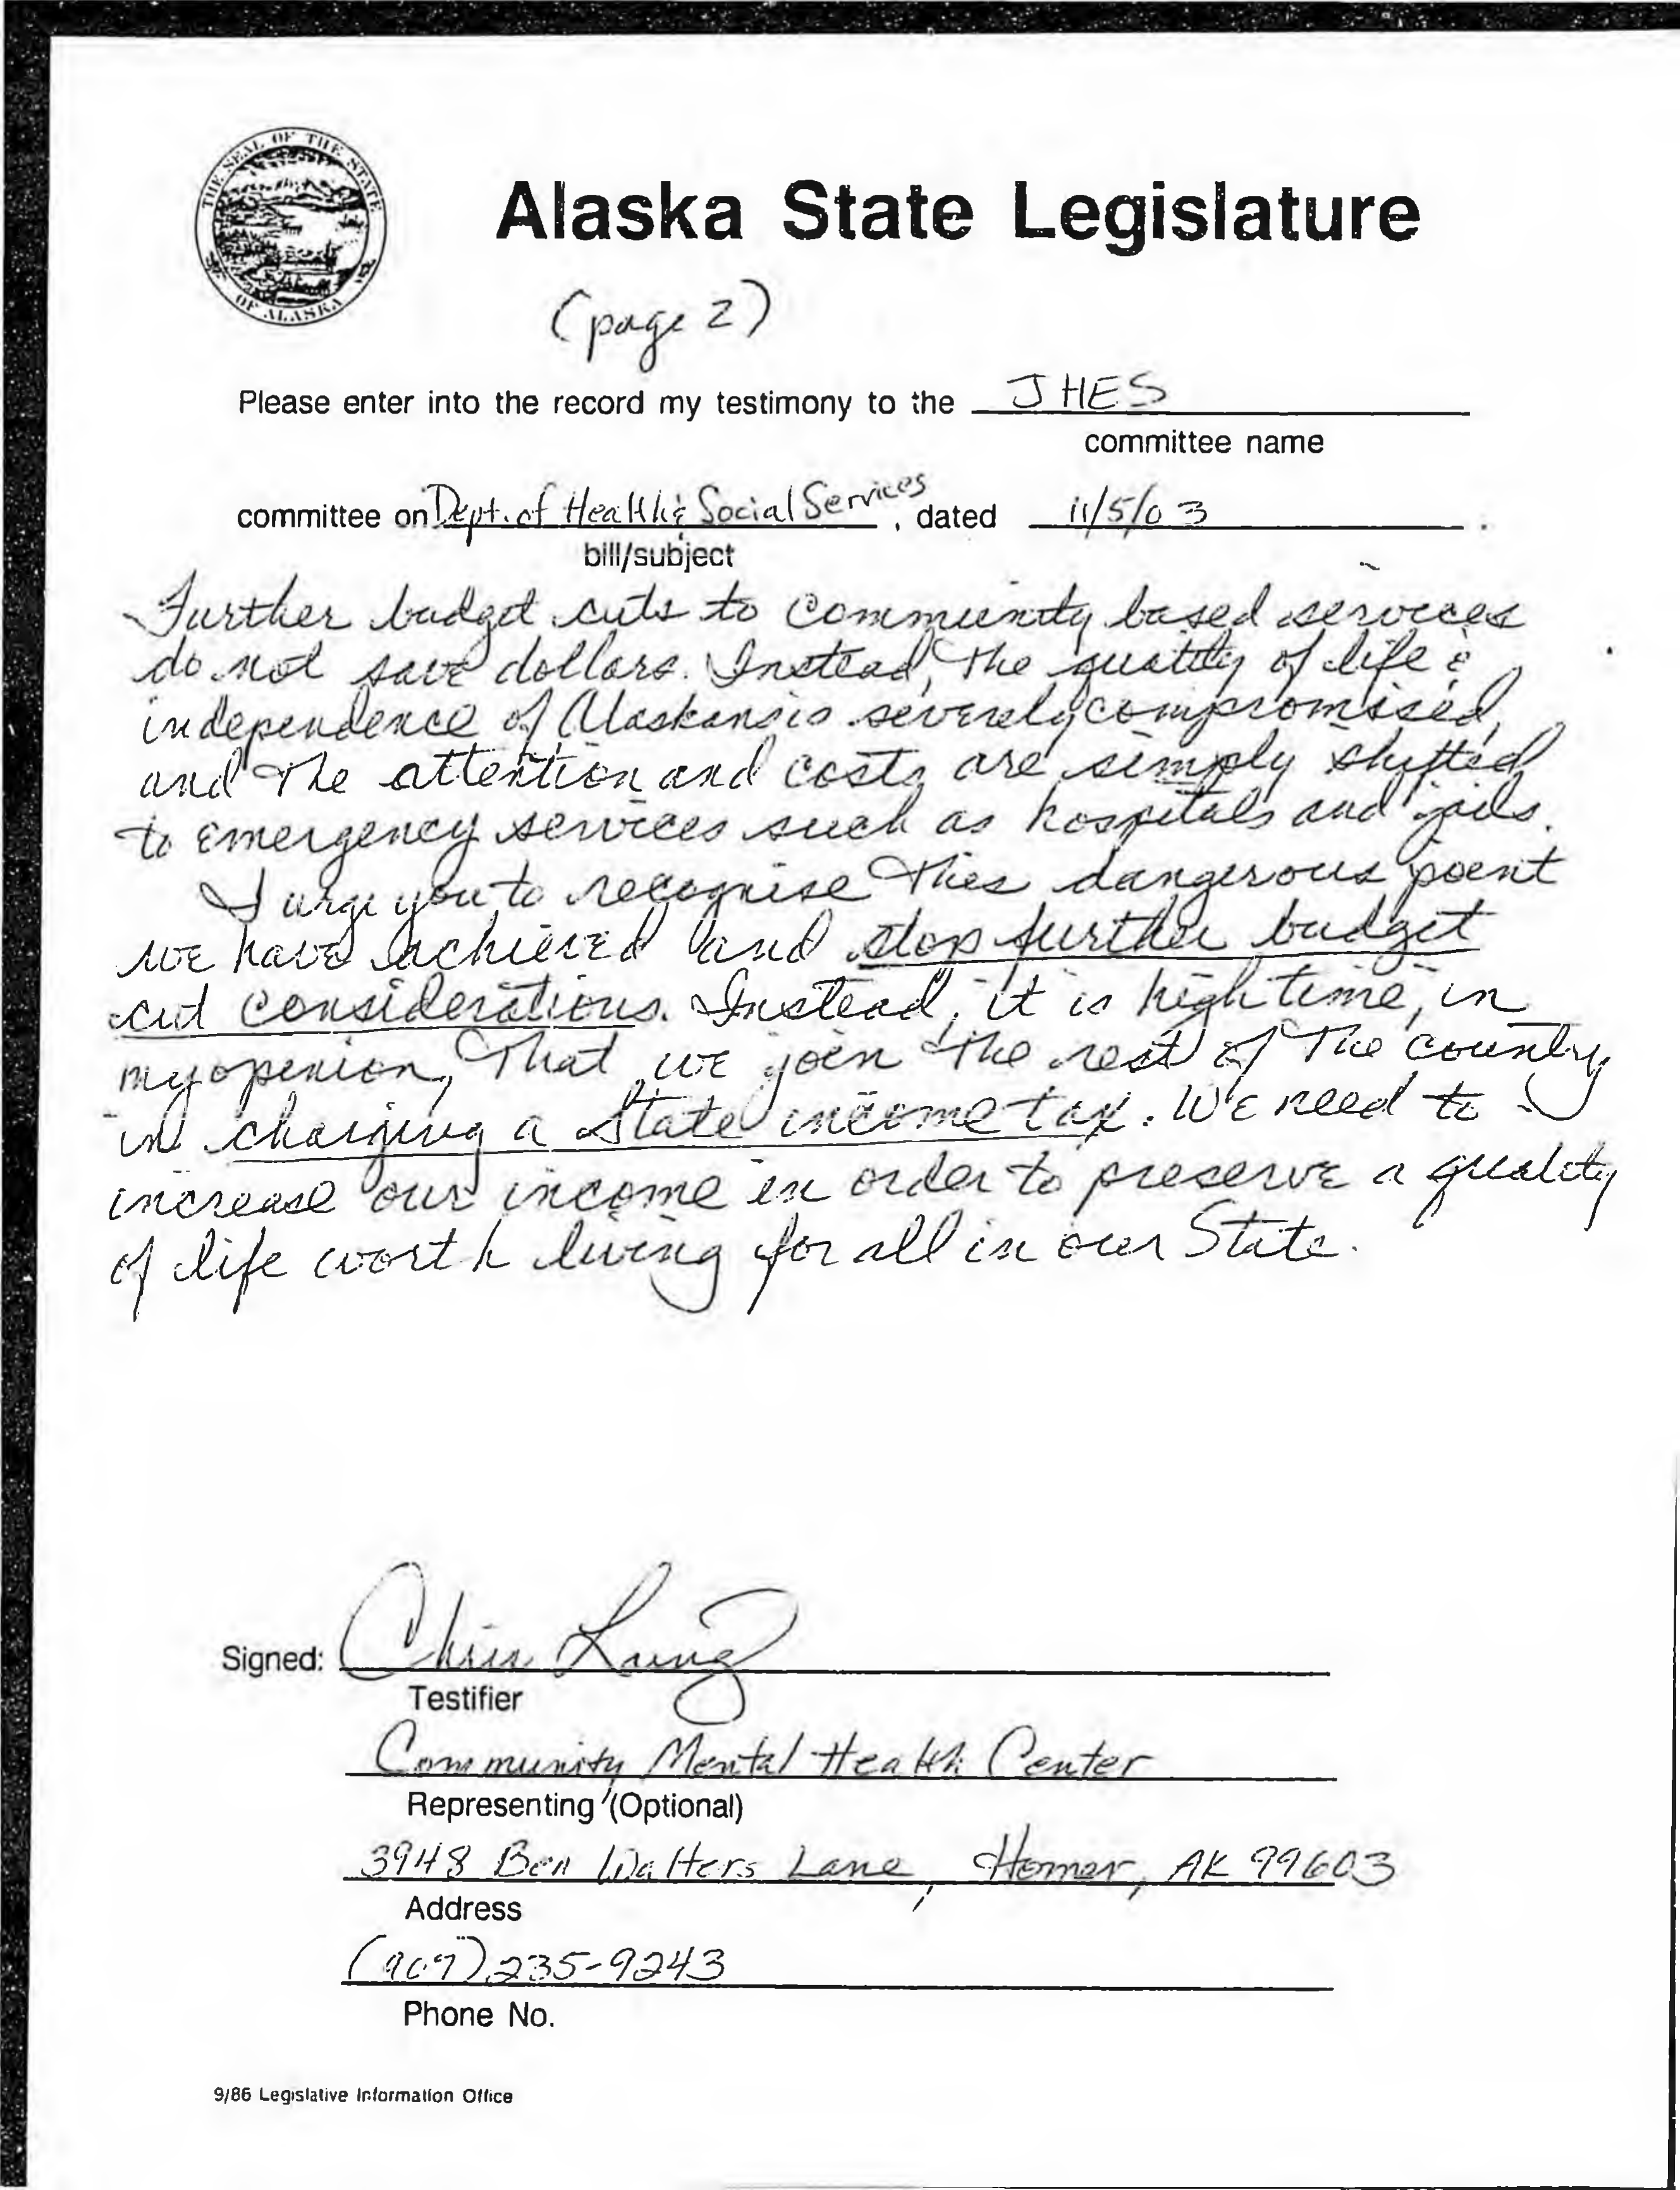 THE SEAL OF THE STATE OF ALASKA
Alaska State Legislature
(page 2)
Please enter into the record my testimony to the JHES
committee name
committee on Dept. of Health & Social Services, dated 11/5/03.
bill/subject
Further budget cuts to community based services
do not save dollars. Instead, the quality of life &
independence of Alaskans is severely compromised,
and the attention and costs are simply shifted
to emergency services such as hospitals and jails.
I urge you to recognise this dangerous point
we have achieved and stop further budget
cut considerations. Instead, it is high time, in
my opinion, that we join the rest of the country
in charging a State income tax. We need to
increase our income in order to preserve a quality
of life worth living for all in our State.
Signed:
Testifier
Community Mental Health Center
Representing (Optional)
3948 Ben Walters Lane, Homer, AK 99603
Address
(907) 235-9243
Phone No.
9/86 Legislative Information Office